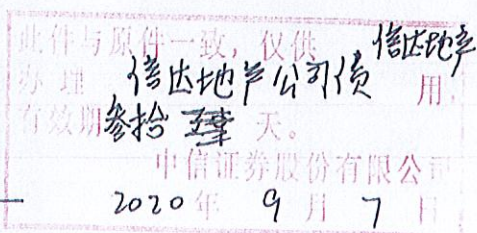 此件与原件一致，仅供 信达地产
办理 信达地产公司债 用，
有效期叁拾 天。
中信证券股份有限公司
2020年 9月 7日